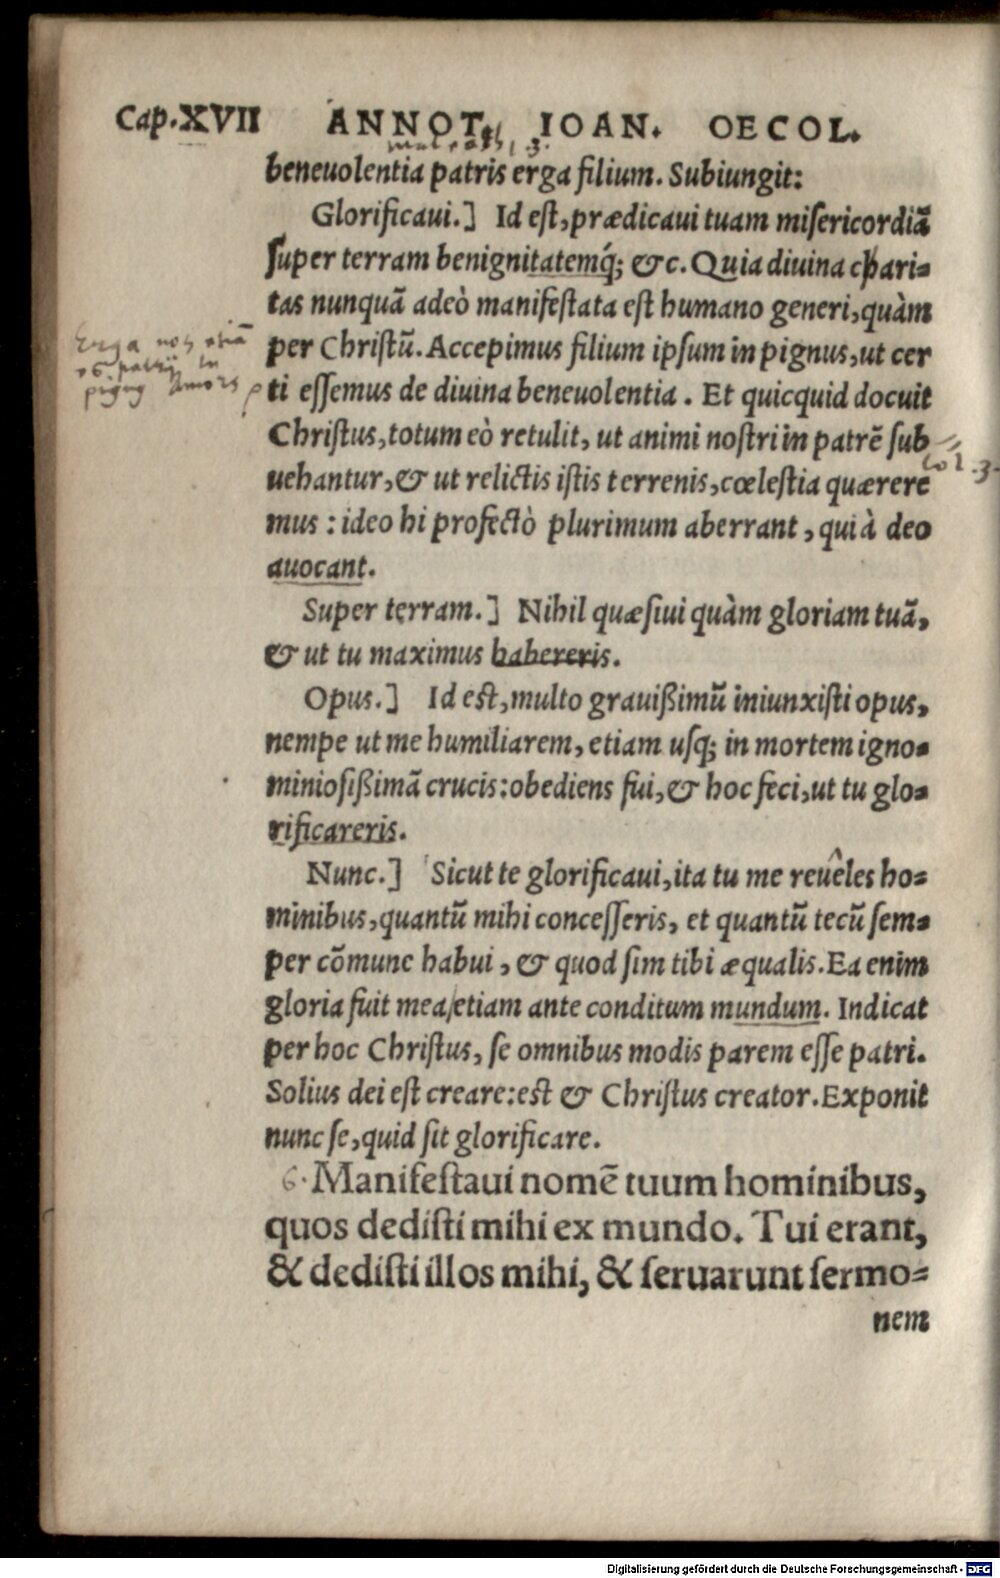 Cap.XVII ANNOT. IOAN. OECOL.
beneuolentia patris erga filium. Subiungit:
Glorificaui.] Id est, prædicaui tuam misericordiã
super terram benignitatemq́;  &c. Quia diuina chari=
tas nunquã adeò manifestata est humano generi, quàm
per Christũ. Accepimus filium ipsum in pignus, ut cer
ti essemus de diuina beneuolentia. Et quicquid docuit
Christus, totum eò retulit, ut animi nostri in patrẽ sub
uehantur, & ut relictis istis terrenis, cœlestia quærere
Col. 3.
mus: ideo hi profectò plurimum aberrant, qui à deo
auocant.
Super terram.] Nihil quæsiui quàm gloriam tuã,
& ut tu maximus habereris.
Opus.] Id est, multo grauißimũ iniunxisti opus,
nempe ut me humiliarem, etiam usq; in mortem igno=
miniosißimã crucis: obediens fui, & hoc feci, ut tu glo=
rificareris.
Nunc.] Sicut te glorificaui, ita tu me reueles ho=
minibus, quantũ mihi concesseris, et quantũ tecũ sem=
per cõmune habui, & quod sim tibi æqualis. Ea enim
gloria fuit mea/etiam ante conditum mundum. Indicat
per hoc Christus, se omnibus modis parem esse patri.
Solius dei est creare: est & Christus creator. Exponit
nunc se, quid sit glorificare.
6. Manifestaui nomẽ tuum hominibus,
quos dedisti mihi ex mundo. Tui erant,
& dedisti illos mihi, & seruarunt sermo=
nem
Digitalisierung gefördert durch die Deutsche Forschungsgemeinschaft - DFG